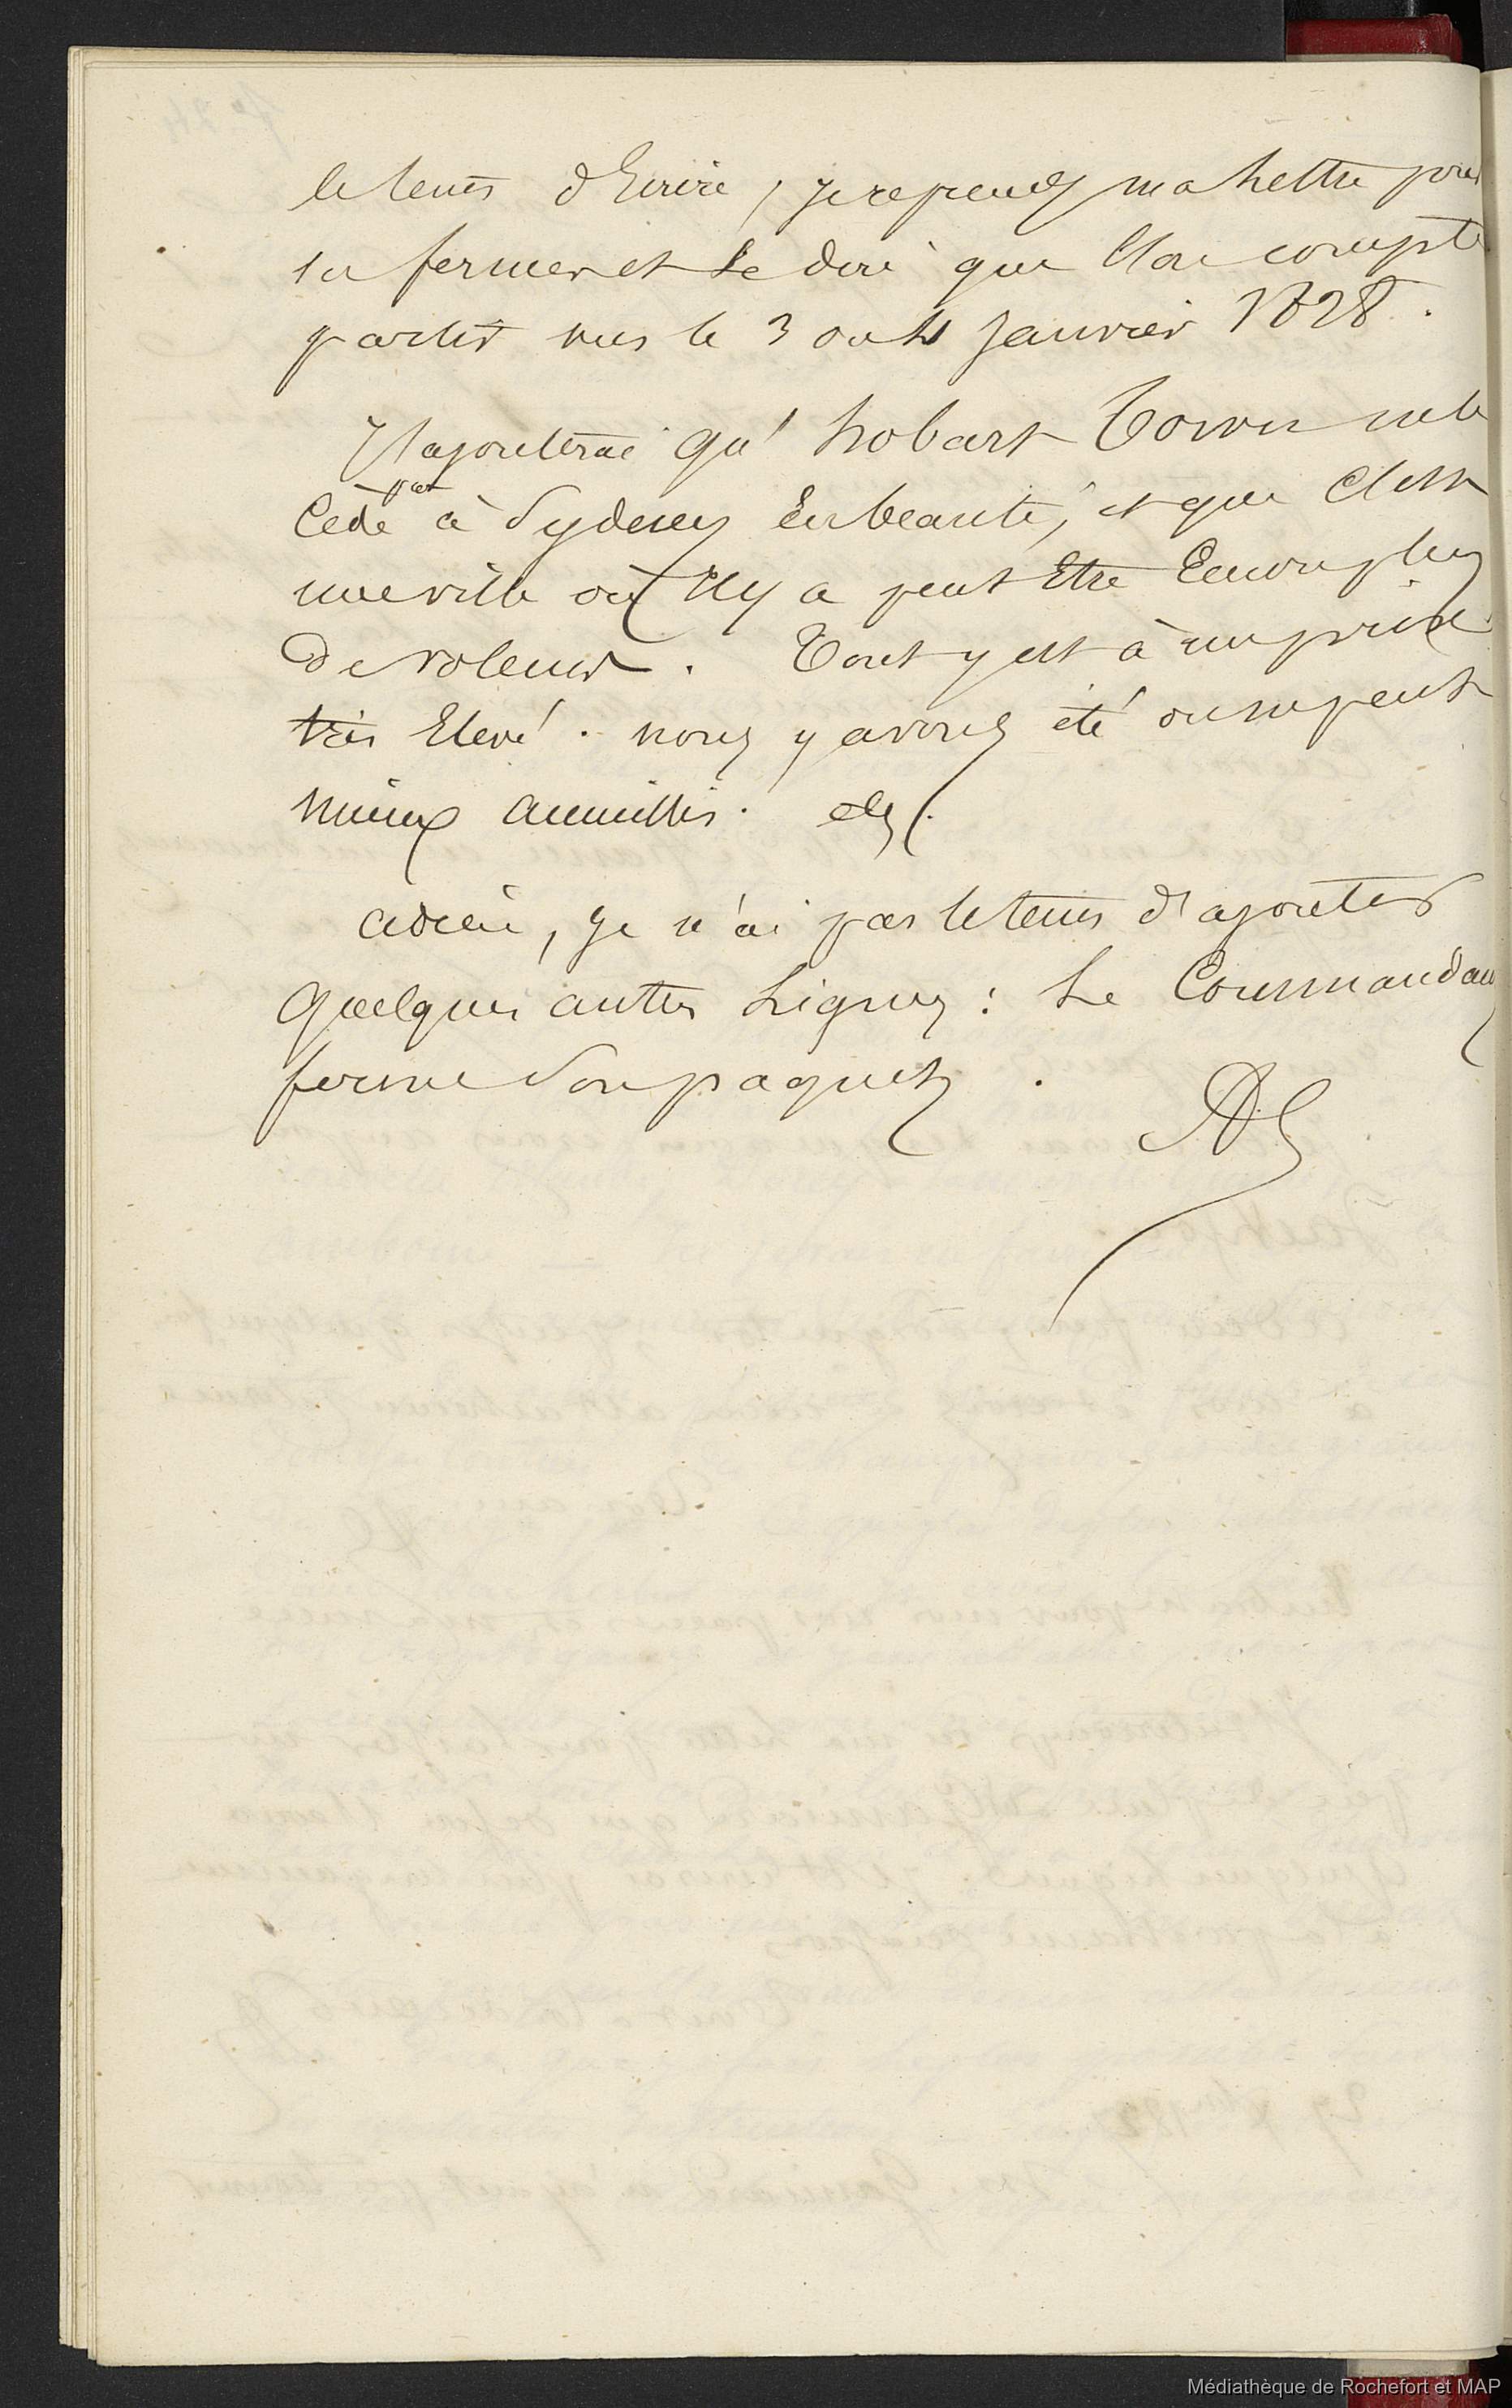 le tems d'Ecrire, je reprends ma Lettre pour
la fermer et te dire que l'on compte
partir vers le 3 ou 4 Janvier 1828.
J'ajouterai qu' hobart Town ne le
Cède pas à Sydney en beauté, et que C'est
une ville où Il y a peut Etre Encore plus
de voleurs. Tout y est à un prix
très Elevé. nous y avons été on ne peut
mieux accueillis. etc.
adieu, je n'ai pas le tems d'ajouter
quelques autres Lignes : Le Commandant
ferme Son paquet.
Médiathèque de Rochefort et MAP